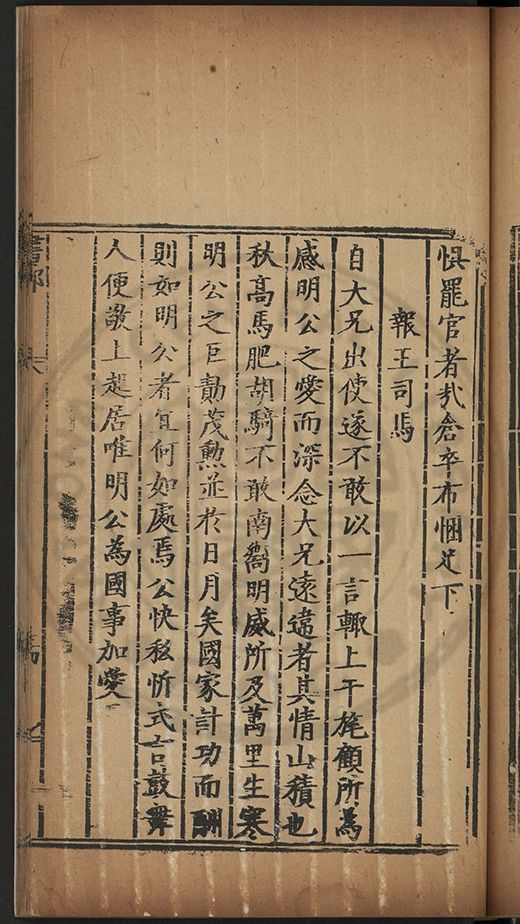 惧罷官者乎倉卒布悃足下
報王司馬
自大兄出使遂不敢以一言輙上干旄顧所為
感明公之愛而深念大兄遠違者其情山積也
秋高馬肥胡騎不敢南嚮明威所及萬里生寒
明公之巨勛茂勲並於日月矣國家計功而酬
則如明公者宜何如處焉公快私忻式言鼓舞
人便敬上起居唯明公為國事加愛